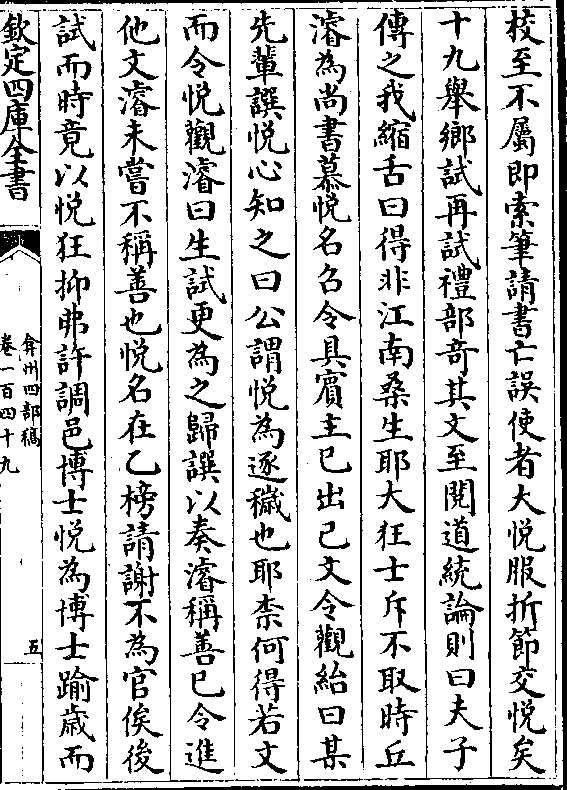 校至不屬即索筆請書亡誤使者大悅服折節交悅矣
十九舉鄉試再試禮部竒其文至閱道統論則曰夫子
傳之我縮舌曰得非江南桑生耶大狂士斥不取時丘
濬為尚書慕悅名召令具賓主已出己文令觀紿曰某
先輩譔悅心知之曰公謂悅為逐穢也耶柰何得若文
而令悅觀濬曰生試更為之歸譔以奏濬稱善已令進
他文濬未嘗不稱善也悅名在乙榜請謝不為官俟後
試而時竟以悅狂抑弗許調邑博士悅為博士踰歲而
欽定四庫全書
弇州四部稿
卷一百四十九
五